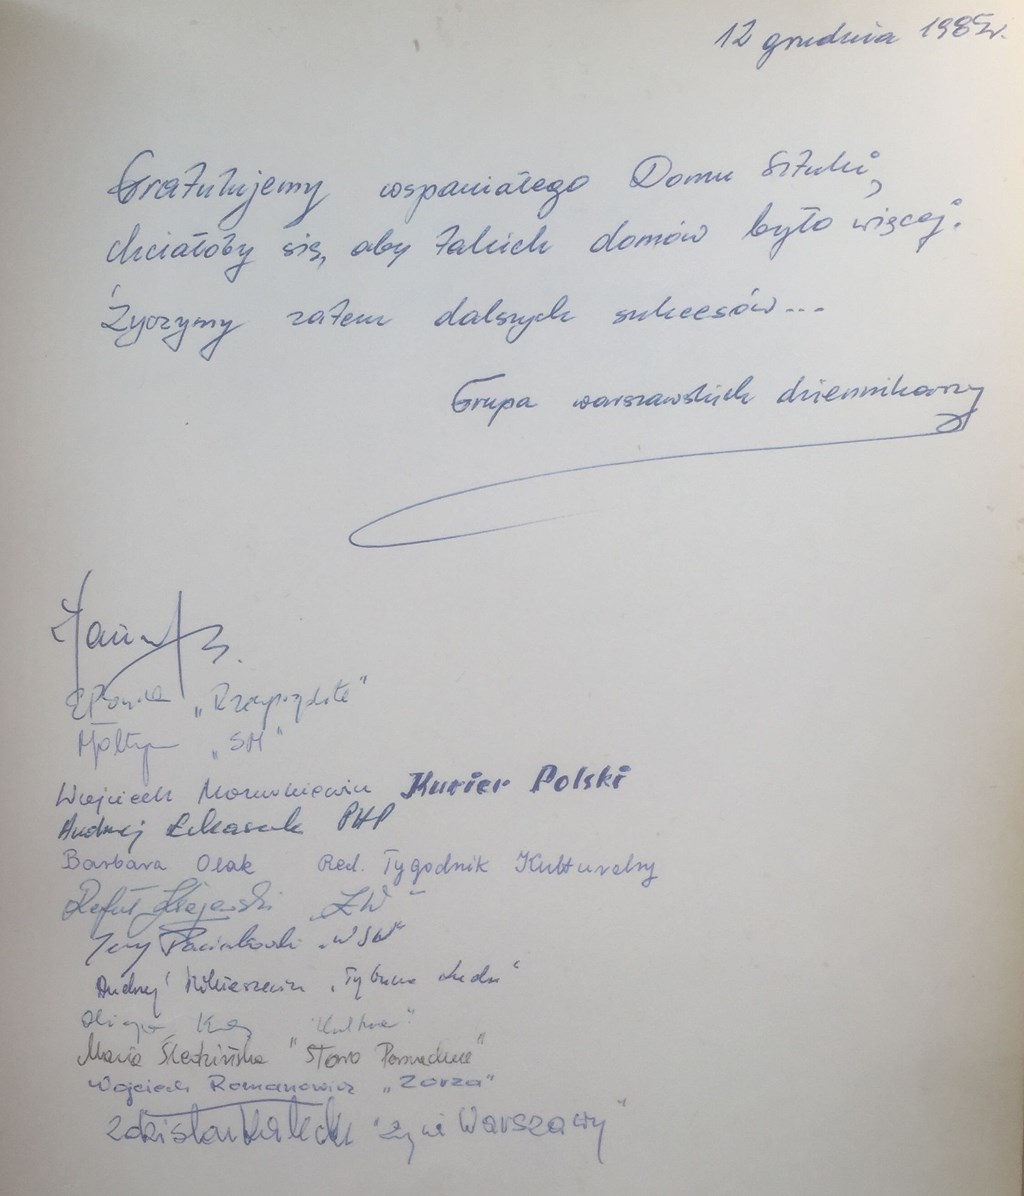 12 grudnia 1985r.
Gratulujemy wspaniałego Domu Sztuki,
chciałoby się, aby takich domów było więcej.
Życzymy zatem dalszych sukcesów...
Grupa warszawskich dziennikarzy
"Rzeczpospolita"
"SM"
Wojciech Kurier Polski
Andrzej Łukasiak PAP
Barbara Olak Red. Tygodnik Kulturalny
Rafał "ŻW"
Jerzy "WSW"
Andrzej "Trybuna Ludu"
"Kultura"
Maria Śledzińska "Słowo Powszechne"
Wojciech Romanowicz "Zorza"
Zdzisław "Życie Warszawy"